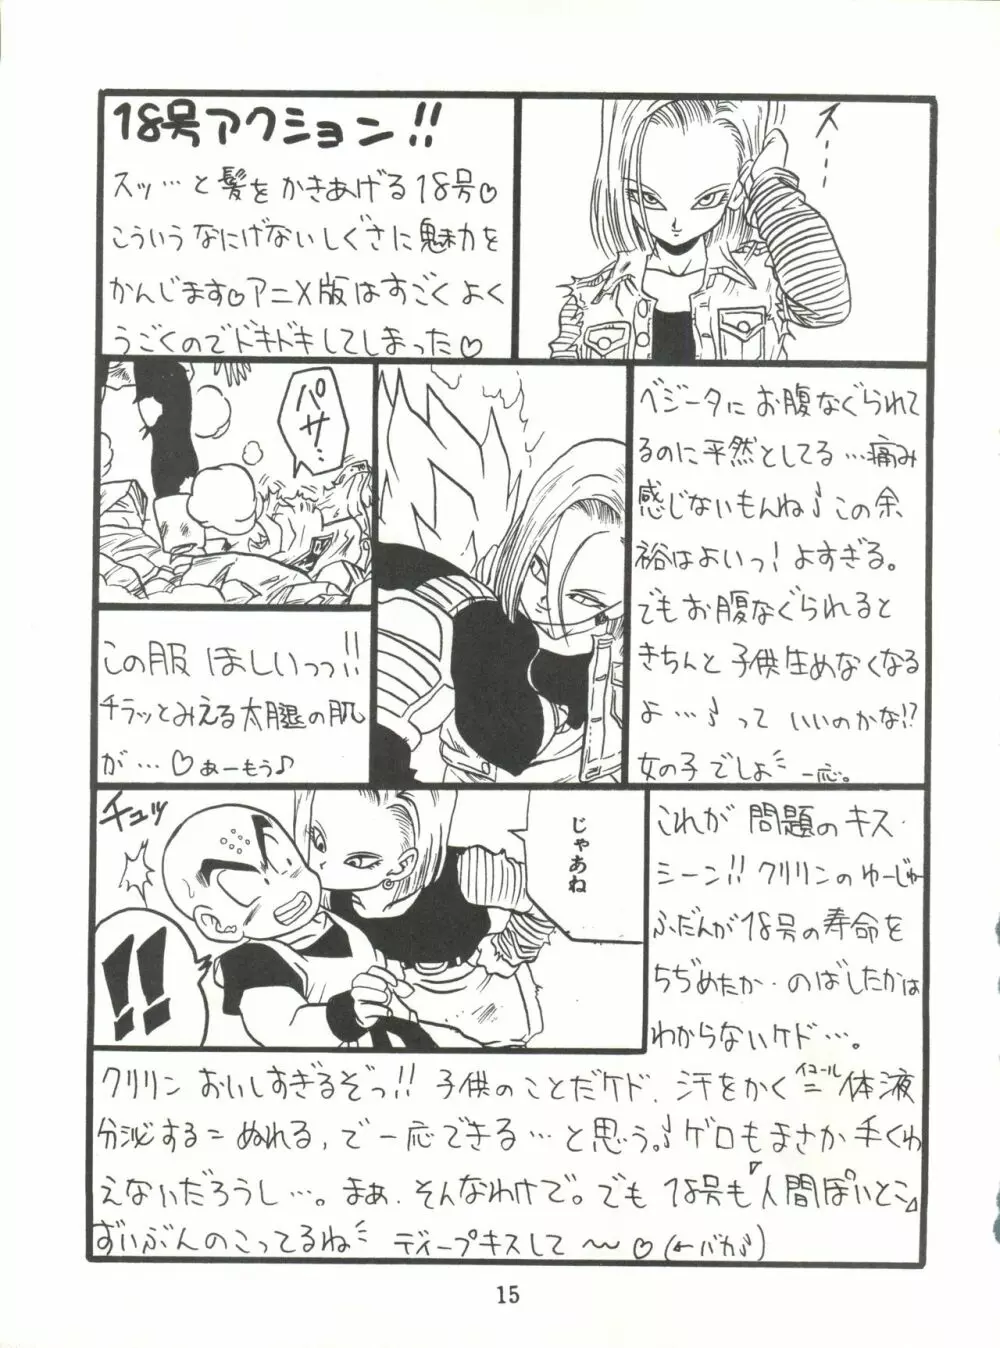 18号アクション!!
スッ…と髪をかきあげる18号♡
こういうなにげないしぐさに魅力を
かんじます♡アニメ版はすごくよく
うごくのでドキドキしてしまった♡
スー…
パサ…
ベジータにお腹なぐられて
るのに平然としてる…痛み
感じないもんね♪この余
裕はよいっ!よすぎる。
でもお腹なぐられると
きちんと子供生めなくなる
よ…♪っていいのかな!?
女の子でしょ一応。
この服ほしいっっ!!
チラッとみえる太腿の肌
が…♡あーもう♪
チュッ
!!
じゃあね
これが問題のキス・
シーン!!クリリンのゆーじゅー
ふだんが18号の寿命を
ちぢめたか・のばしたかは
わからないケド…。
クリリンおいしすぎるぞっ!!子供のことだケド、汗をかく=イコール体液
分泌する=ぬれる,で一応できる…と思う♪ゲロもまさか手くわ
えないだろうし…。まぁ、そんなわけで。でも18号も『人間ぽいとこ』
ずいぶんのこってるね ディープキスして〜♡(←バカが)
15